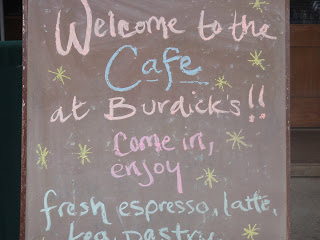 Welcome to the
Cafe
at Burdick's!!
Come in,
enjoy
fresh espresso, latte,
tea, pastry